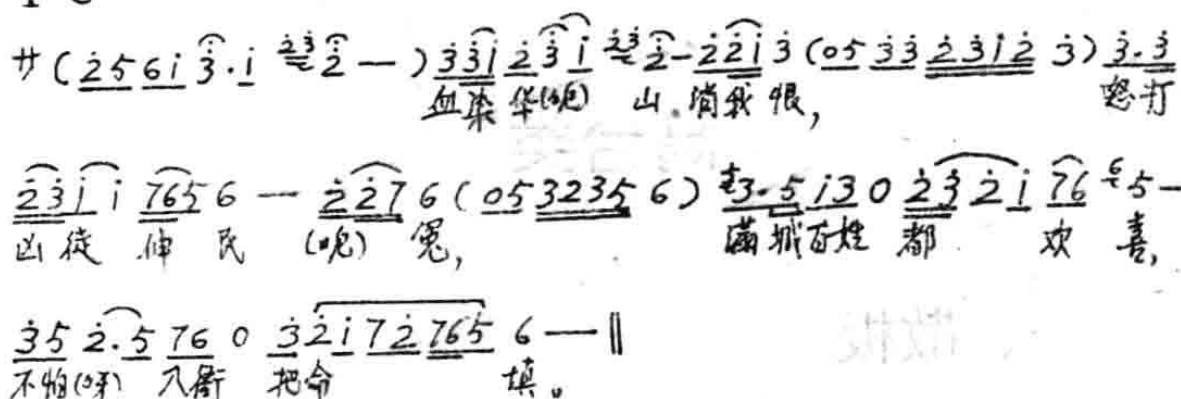 サ(2561 3·1 23 2 —) 331 231 23 2 - 221 3 (05 33 2312 3) 3.3
血染华(呃) 山.消我恨, 怒打
2311 765 6 — 227 6 (05 3235 6) 3.5 13 0 2321 76 6 5 —
凶徒 伸民 (呃) 冤, 满城百姓 都 欢 喜,
35 2.5 76 0 321 72 765 6 — ‖
不怕(呀) 入衙 把命 填。